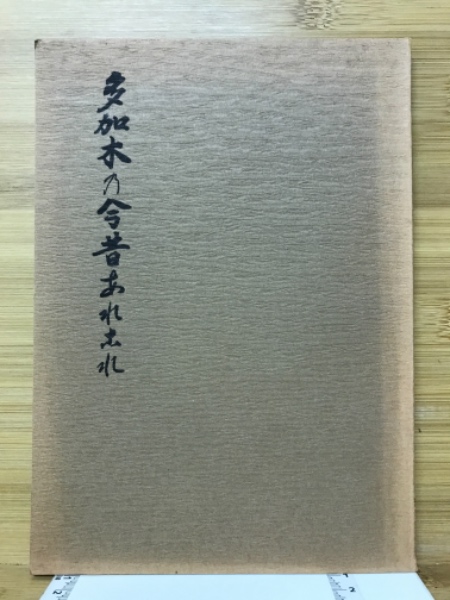 多加木乃今昔あれこれ